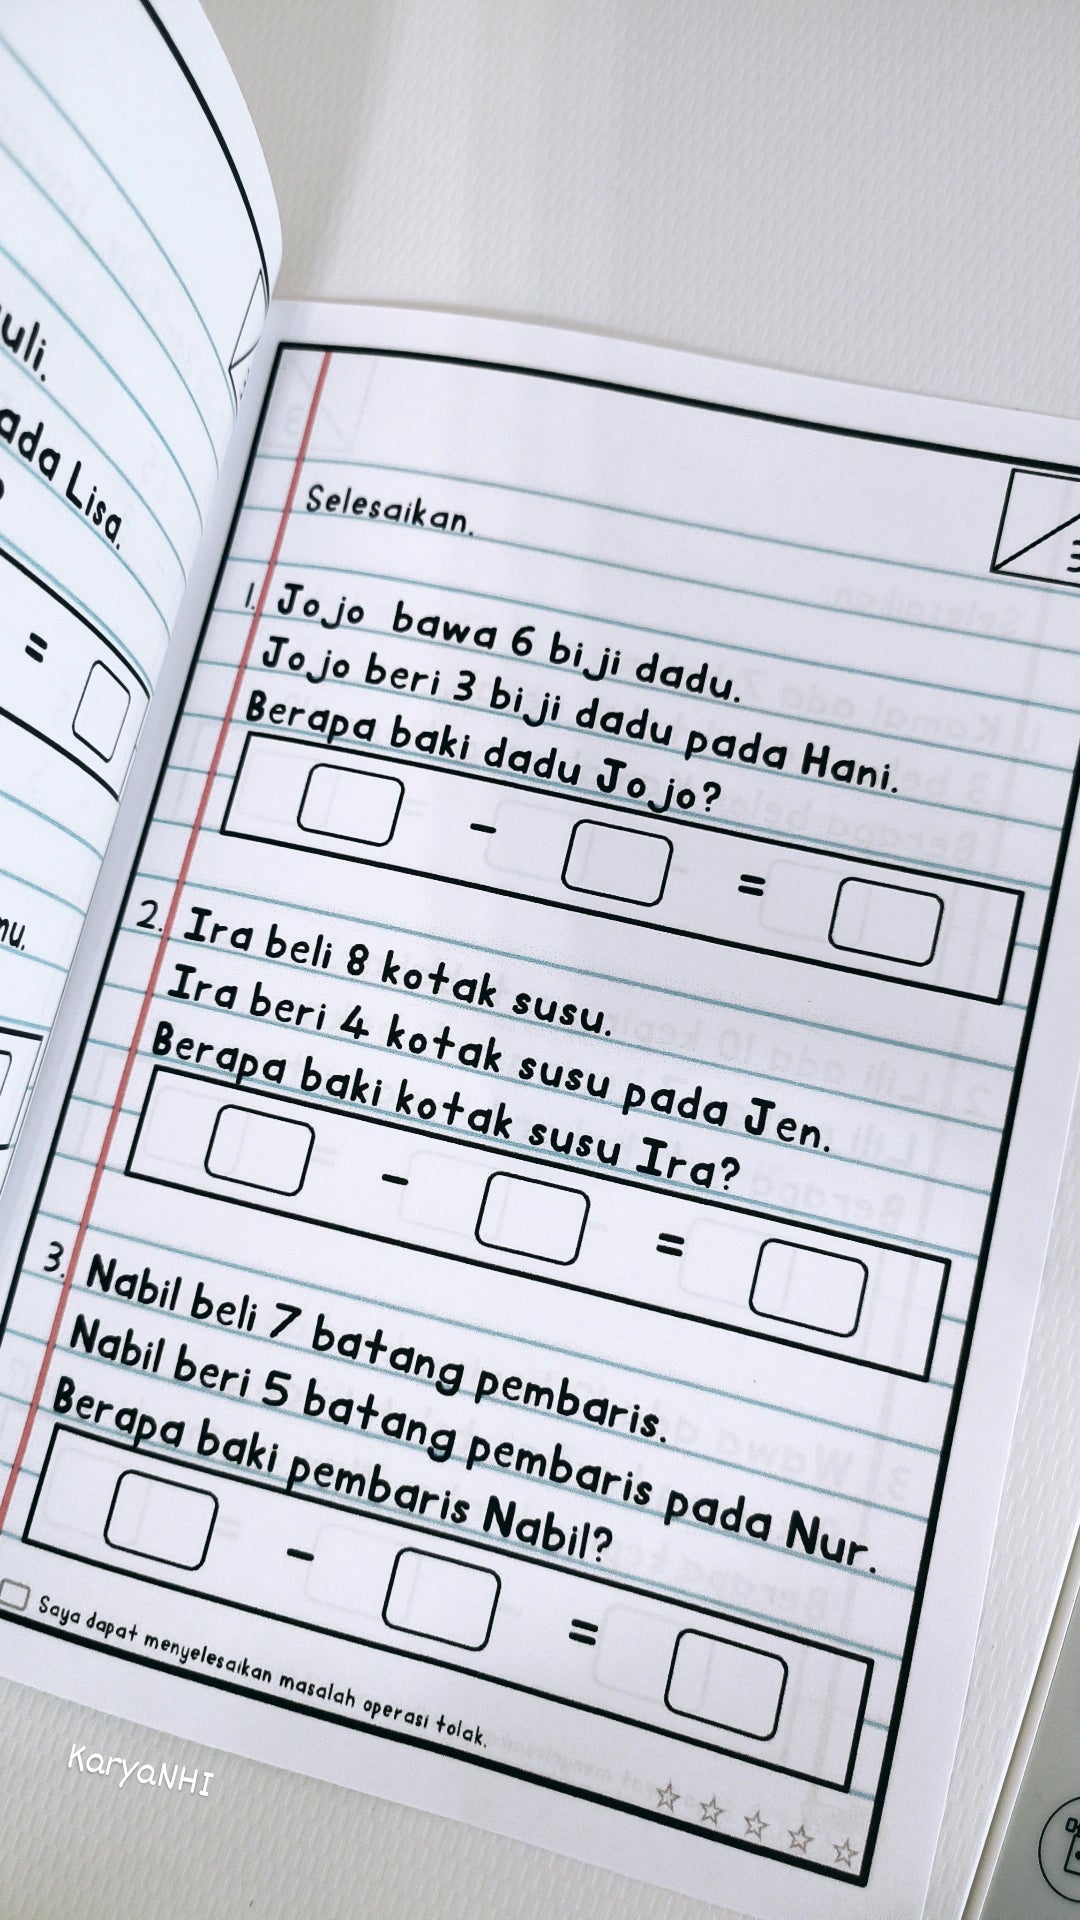 uli.
ada Lisa.
=
mu.
Selesaikan.
3
1. Jojo bawa 6 biji dadu.
Jojo beri 3 biji dadu pada Hani.
Berapa baki dadu Jojo?
- =
2. Ira beli 8 kotak susu.
Ira beri 4 kotak susu pada Jen.
Berapa baki kotak susu Ira?
- =
3. Nabil beli 7 batang pembaris.
Nabil beri 5 batang pembaris pada Nur.
Berapa baki pembaris Nabil?
- =
Saya dapat menyelesaikan masalah operasi tolak.
KaryaNHI